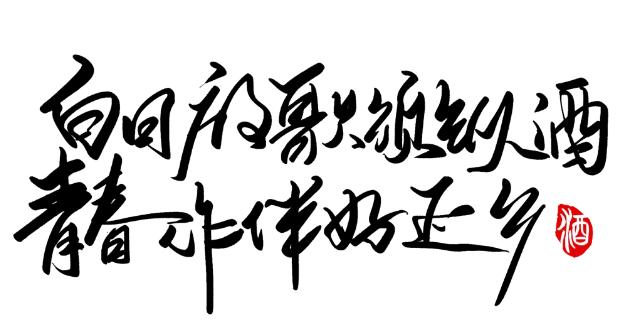 白日放歌须纵酒
青春作伴好还乡
酒